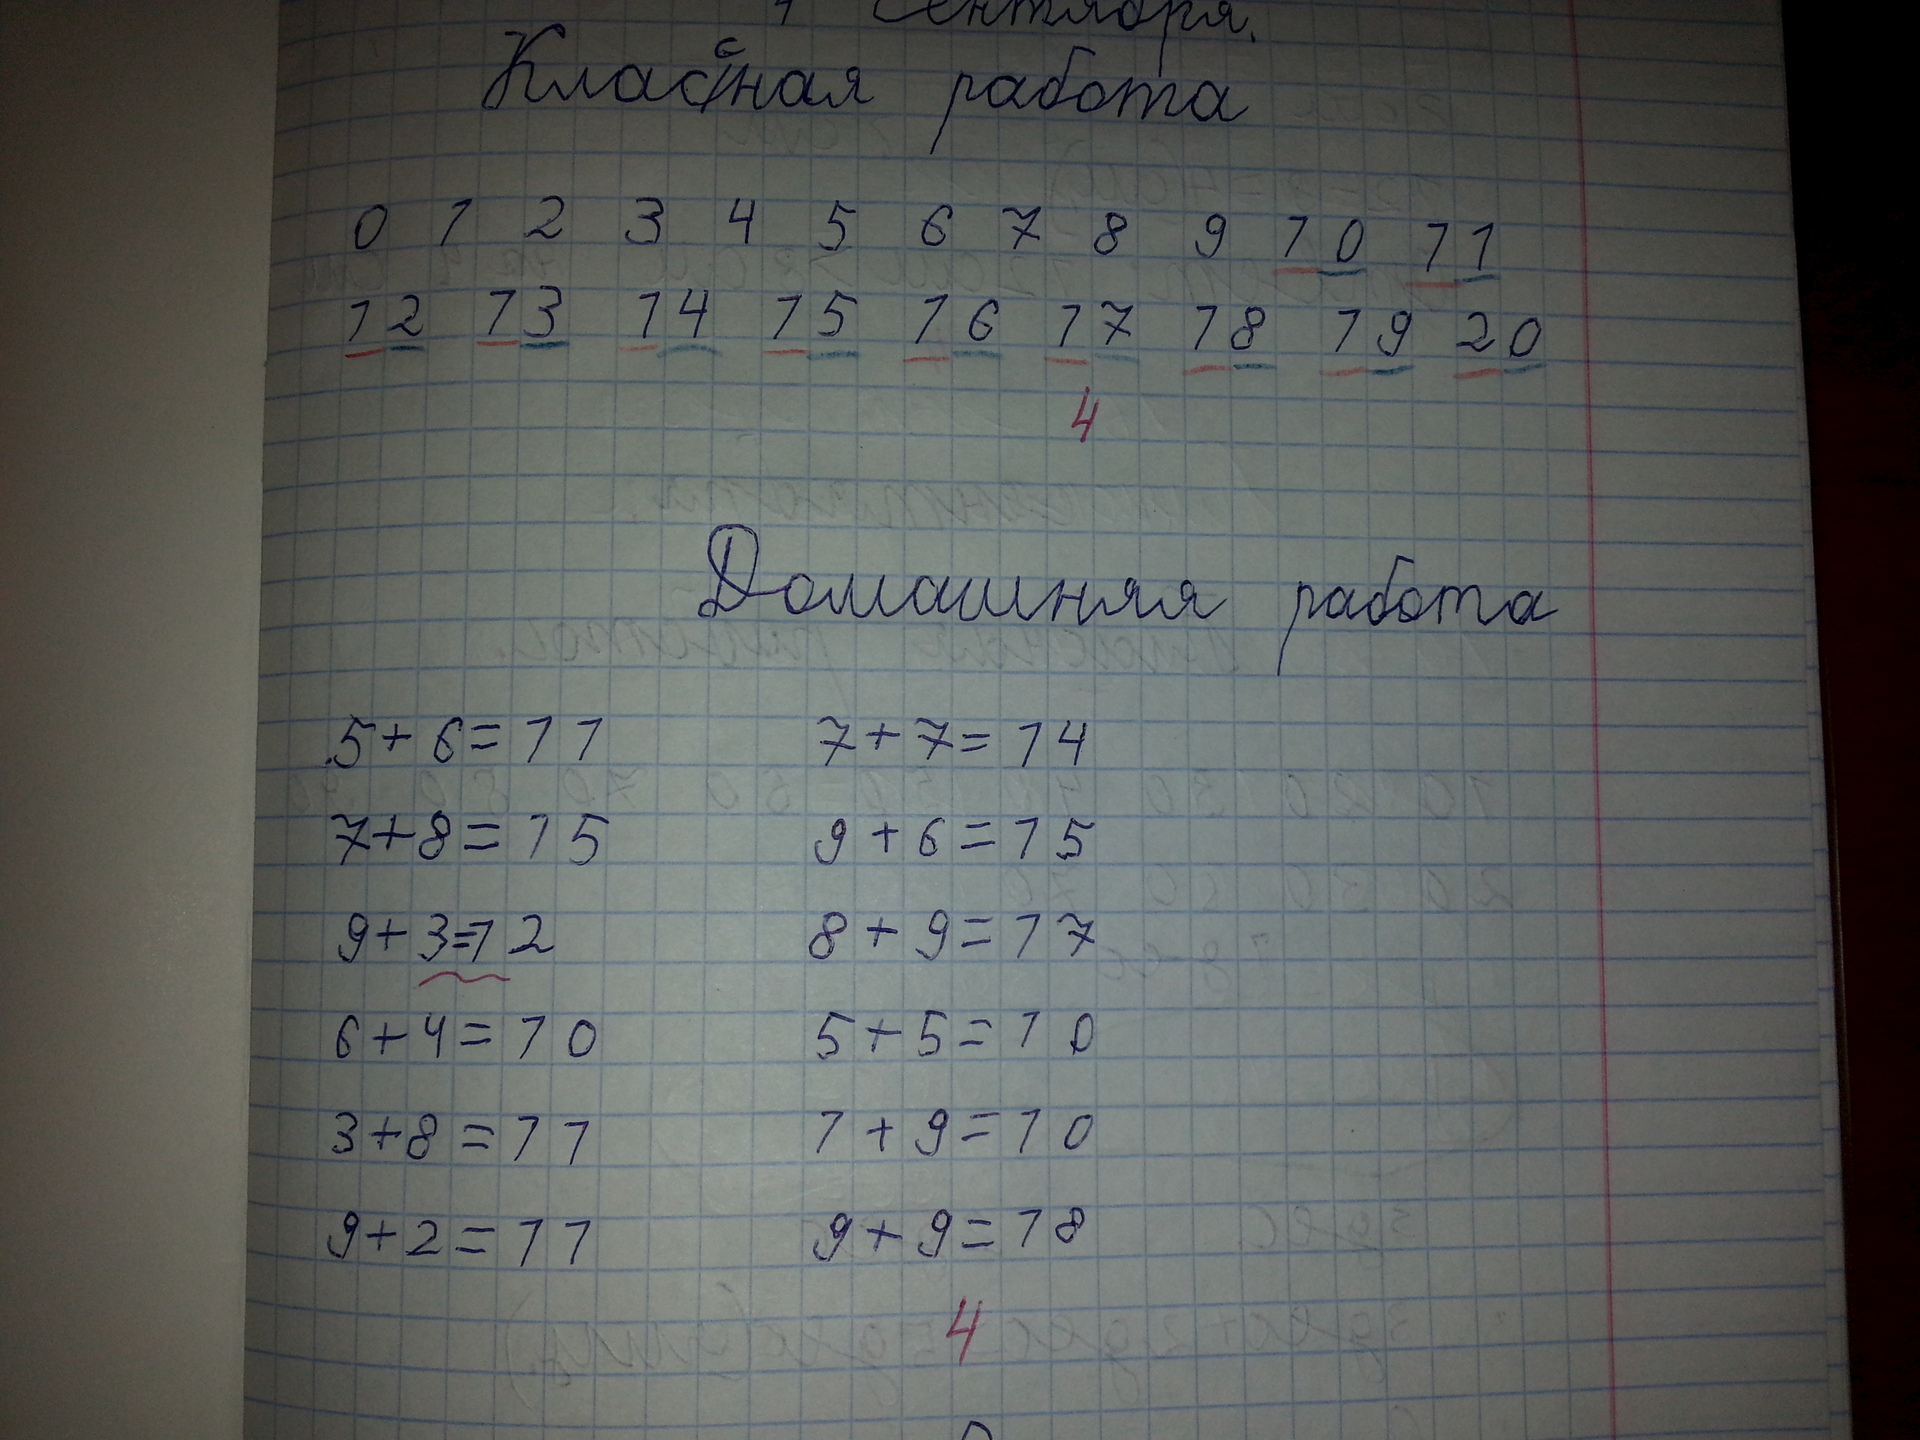 Сентября.
Классная работа
0 1 2 3 4 5 6 7 8 9 10 11
12 13 14 15 16 17 18 19 20
4
Домашняя работа
5+6=11 7+7=14
7+8=15 9+6=15
9+3=12 8+9=17
6+4=10 5+5=10
3+8=11 1+9=10
9+2=11 9+9=18
4